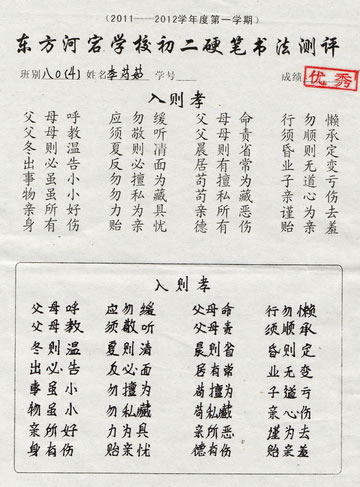 (2011——2012学年度第一学期)
东方河宕学校初二硬笔书法测评
班别 八0(4) 姓名 李 学号 成绩 优秀
入则孝
父母呼 应勿缓 父母命 行勿懒
父母教 须敬听 父母责 须顺承
冬则温 夏则凊 晨则省 昏则定
出必告 反必面 居有常 业无变
事虽小 勿擅为 苟擅为 子道亏
物虽小 勿私藏 苟私藏 亲心伤
亲所好 力为具 亲所恶 谨为去
身有伤 贻亲忧 德有伤 贻亲羞
入则孝
父母呼 应勿缓 父母命 行勿懒
父母教 须敬听 父母责 须顺承
冬则温 夏则凊 晨则省 昏则定
出必告 反必面 居有常 业无变
事虽小 勿擅为 苟擅为 子道亏
物虽小 勿私藏 苟私藏 亲心伤
亲所好 力为具 亲所恶 谨为去
身有伤 贻亲忧 德有伤 贻亲羞